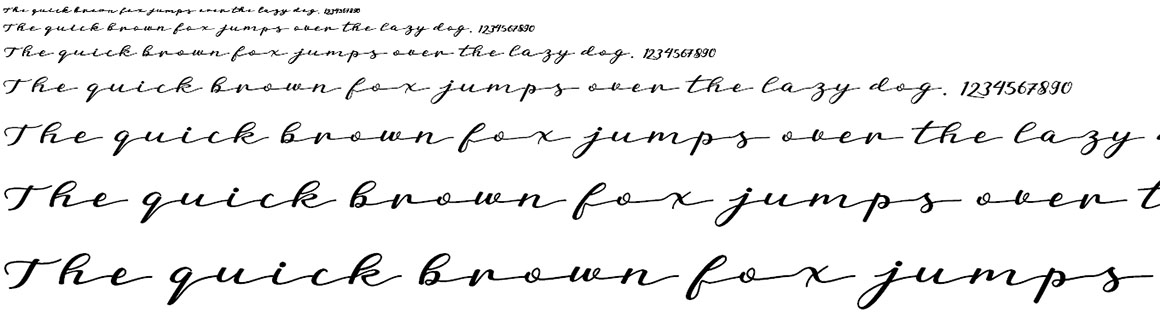 The quick brown fox jumps over the lazy dog. 1234567890
The quick brown fox jumps over the lazy dog. 1234567890
The quick brown fox jumps over the lazy dog. 1234567890
The quick brown fox jumps over the lazy dog. 1234567890
The quick brown fox jumps over the lazy
The quick brown fox jumps over t
The quick brown fox jumps